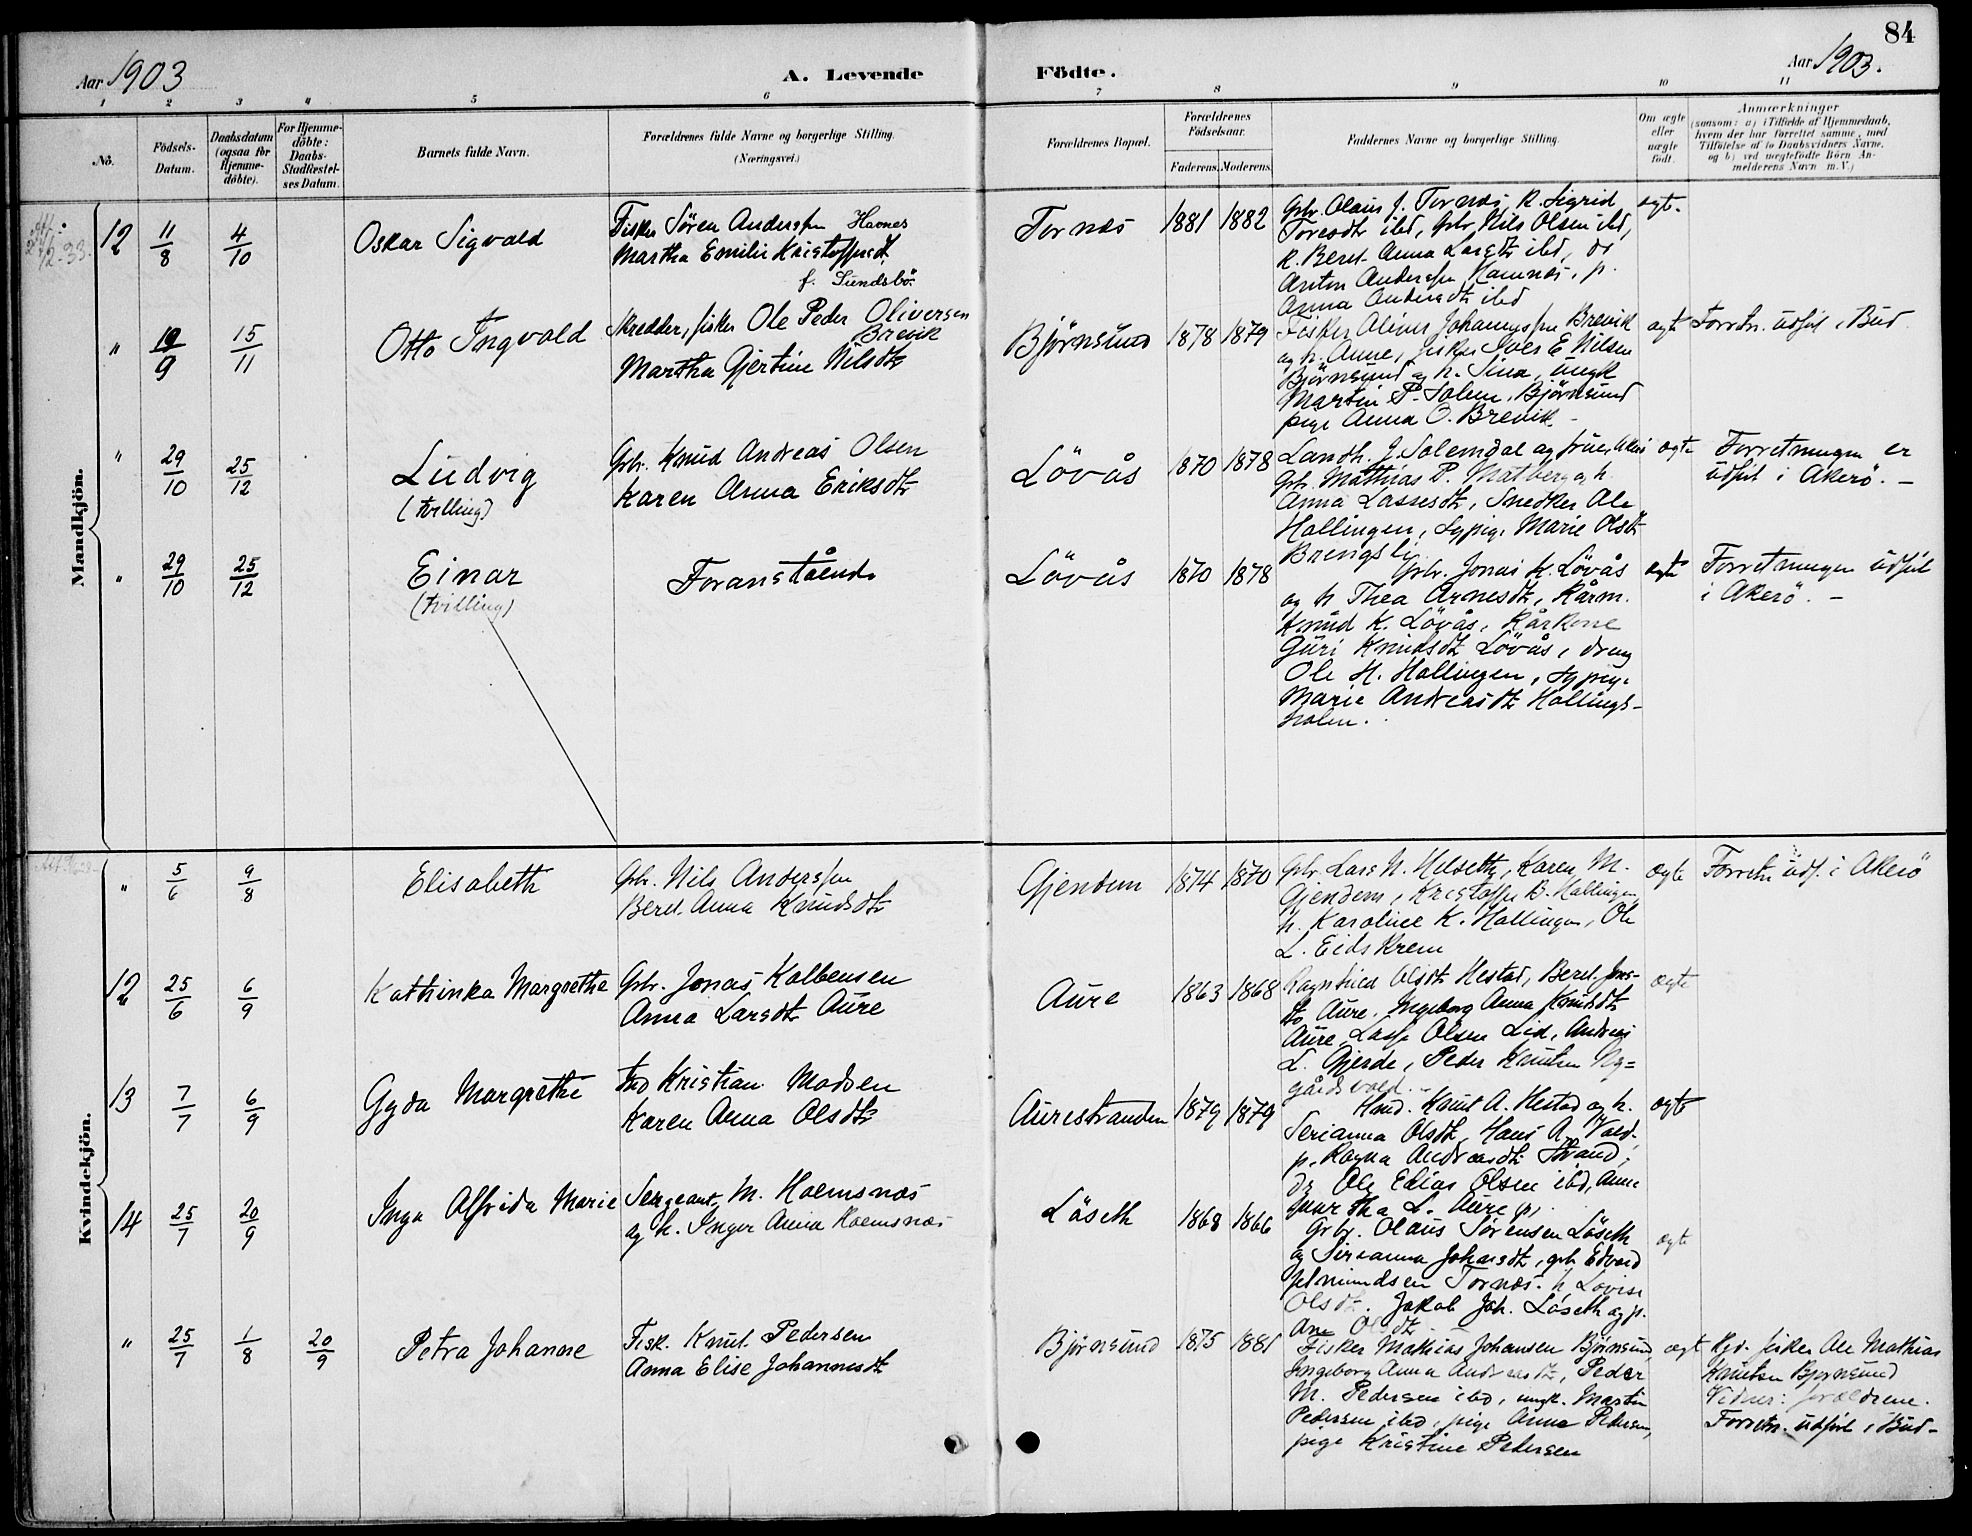 84
Aar 1903
A. Levende
Födte.
Aar 1903.
1 2 3 4 5 6 7 8 9 10 11
No.
Födsels-
Datum.
Daabsdatum
(ogsaa for
Hjemme-
döbte).
For Hjemme-
döbte:
Daabs-
Stadfæstel-
ses Datum.
Barnets fulde Navn.
Forældrenes fulde Navne og borgerlige Stilling.
(Næringsvei.)
Forældrenes Bopæl.
Forældrenes
Födselsaar.
Faderens. Moderens.
Faddernes Navne og borgerlige Stilling.
Om ægte
eller
uægte
født.
Anmærkninger
(saasom: a) i Tilfælde af Hjemmedaab,
hvem der har forrettet samme, med
Tilföielse af to Daabsvidners Navne,
og b) ved uægtefödte Börn An-
melderens Navn m.V.)
Mandkjön.
12 11/8 4/10 Oskar Sigvald
Fisker Sören Anderssen Havnes
Martha Emilie Kristoffersdt.
f. Sundsbö.
Tornes 1881 1882
Gbr. Olaus J. Tornes, k. Sigrid
Toresdtr ibd, Gbr. Nils Olsen ibd,
k. Beret Anna Larsdtr ibd, dr
Anton Anderssen Havnes, p.
Anna Andersdtr ibd
ægte
" 10/9 15/11 Otto Ingvald
Skredder, fisker Ole Peder Oliversen
Brevik
Martha Gjertine Nilsdtr
Björnsund 1878 1879
Fisker Olinus Johannssen Brevik
og h. Anne, fisker Iver E. Nilsen
Björnsund og h. Sina, ungk
Martin P. Solem, Björnsund
pige Anna O. Brevik -
ægte Forretn. udfört i Bud
" 29/10 25/12 Ludvig
(tvilling)
Gbr. Knud Andreas Olsen
Karen Anna Eriksdtr
Lövås 1870 1878
Landh. J. Solemdal og frue, Akerö
Gbr. Mathias P. Malberg og h.
Anna Lassesdtr, Snedker Ole
Hollingen, Sypige Marie Olsdtr
Brengsli
ægte Forretningen er
udfört i Akerö. -
" 29/10 25/12 Einar
(tvilling)
Foranstående
Lövås 1870 1878
Gbr. Jonas K. Lövås
og h Thea Arnesdtr, Kårm.
Knud K. Lövås, Kårkone
Guri Knudsdtr Lövås, dreng
Ole H. Hollingen, sypige
Marie Andreasdtr Hollings-
holm.
ægte Forretningen udfört
i Akerö. -
Kvindekjön.
" 5/6 9/8 Elisabeth
Gbr. Nils Anderssen
Beret Anna Knudsdtr
Gjendem 1874 1870
Gbr. Lars N. Helseth, Karen M.
Gjendem, Kristoffer B. Hollingen,
h. Karoline K. Hollingen, Ole
L. Eidskrem
ægte Forretn udf. i Akerö
12 25/6 6/9 Kathinka Margrethe
Gbr. Jonas Kolbensen
Anna Larsdtr Aure
Aure 1863 1868
Ragnhild Olsdtr Hestad, Beret Jons-
dtr Aure, Ingeborg Anna Knudsdtr
Aure, Lasse Olsen Lid, Andreas
L. Gjerde, Peder Knutsen Ny-
gårdsvold.
ægte
13 7/7 6/9 Gyda Margrethe
Kristian Madsen
Karen Anna Olsdtr
Aurestranden 1879 1879
Knut A. Hestad og h.
Serianna Olsdtr, Hans A. Vold,
p. Ragna Andreasdtr Strand,
dr Ole Elias Olsen ibd, Anne
Martha L. Aure p.
ægte
14 25/7 20/9 Inga Alfrida Marie
Sergeant M. Holmsnæs
og h. Inger Anna Holmsnæs
Löseth 1868 1866
Gbr. Olaus Sørensen Löseth
og Serianna Johansdtr, gbr Edvard
Tornes. h Lovise
Olsdtr. Jakob Joh. Löseth og p.
Ane Olsdtr
ægte
" 25/7 1/8 20/9 Petra Johanne
Fisk. Knut Pedersen
Anna Elise Johannesdtr
Bjørnsund 1875 1881
Fisker Mathias Johansen Bjørnsund,
Ingeborg Anna Andreasdtr, Peder
M. Pedersen ibd, ungk. Martin
Pedersen ibd, pige Anna Pedersen,
pige Kristine Pedersen
ægte Hjd. fisker Ole Mathias
Knutsen Bjørnsund
Vidner: forældrene.
Forretn. udfört i Bud -